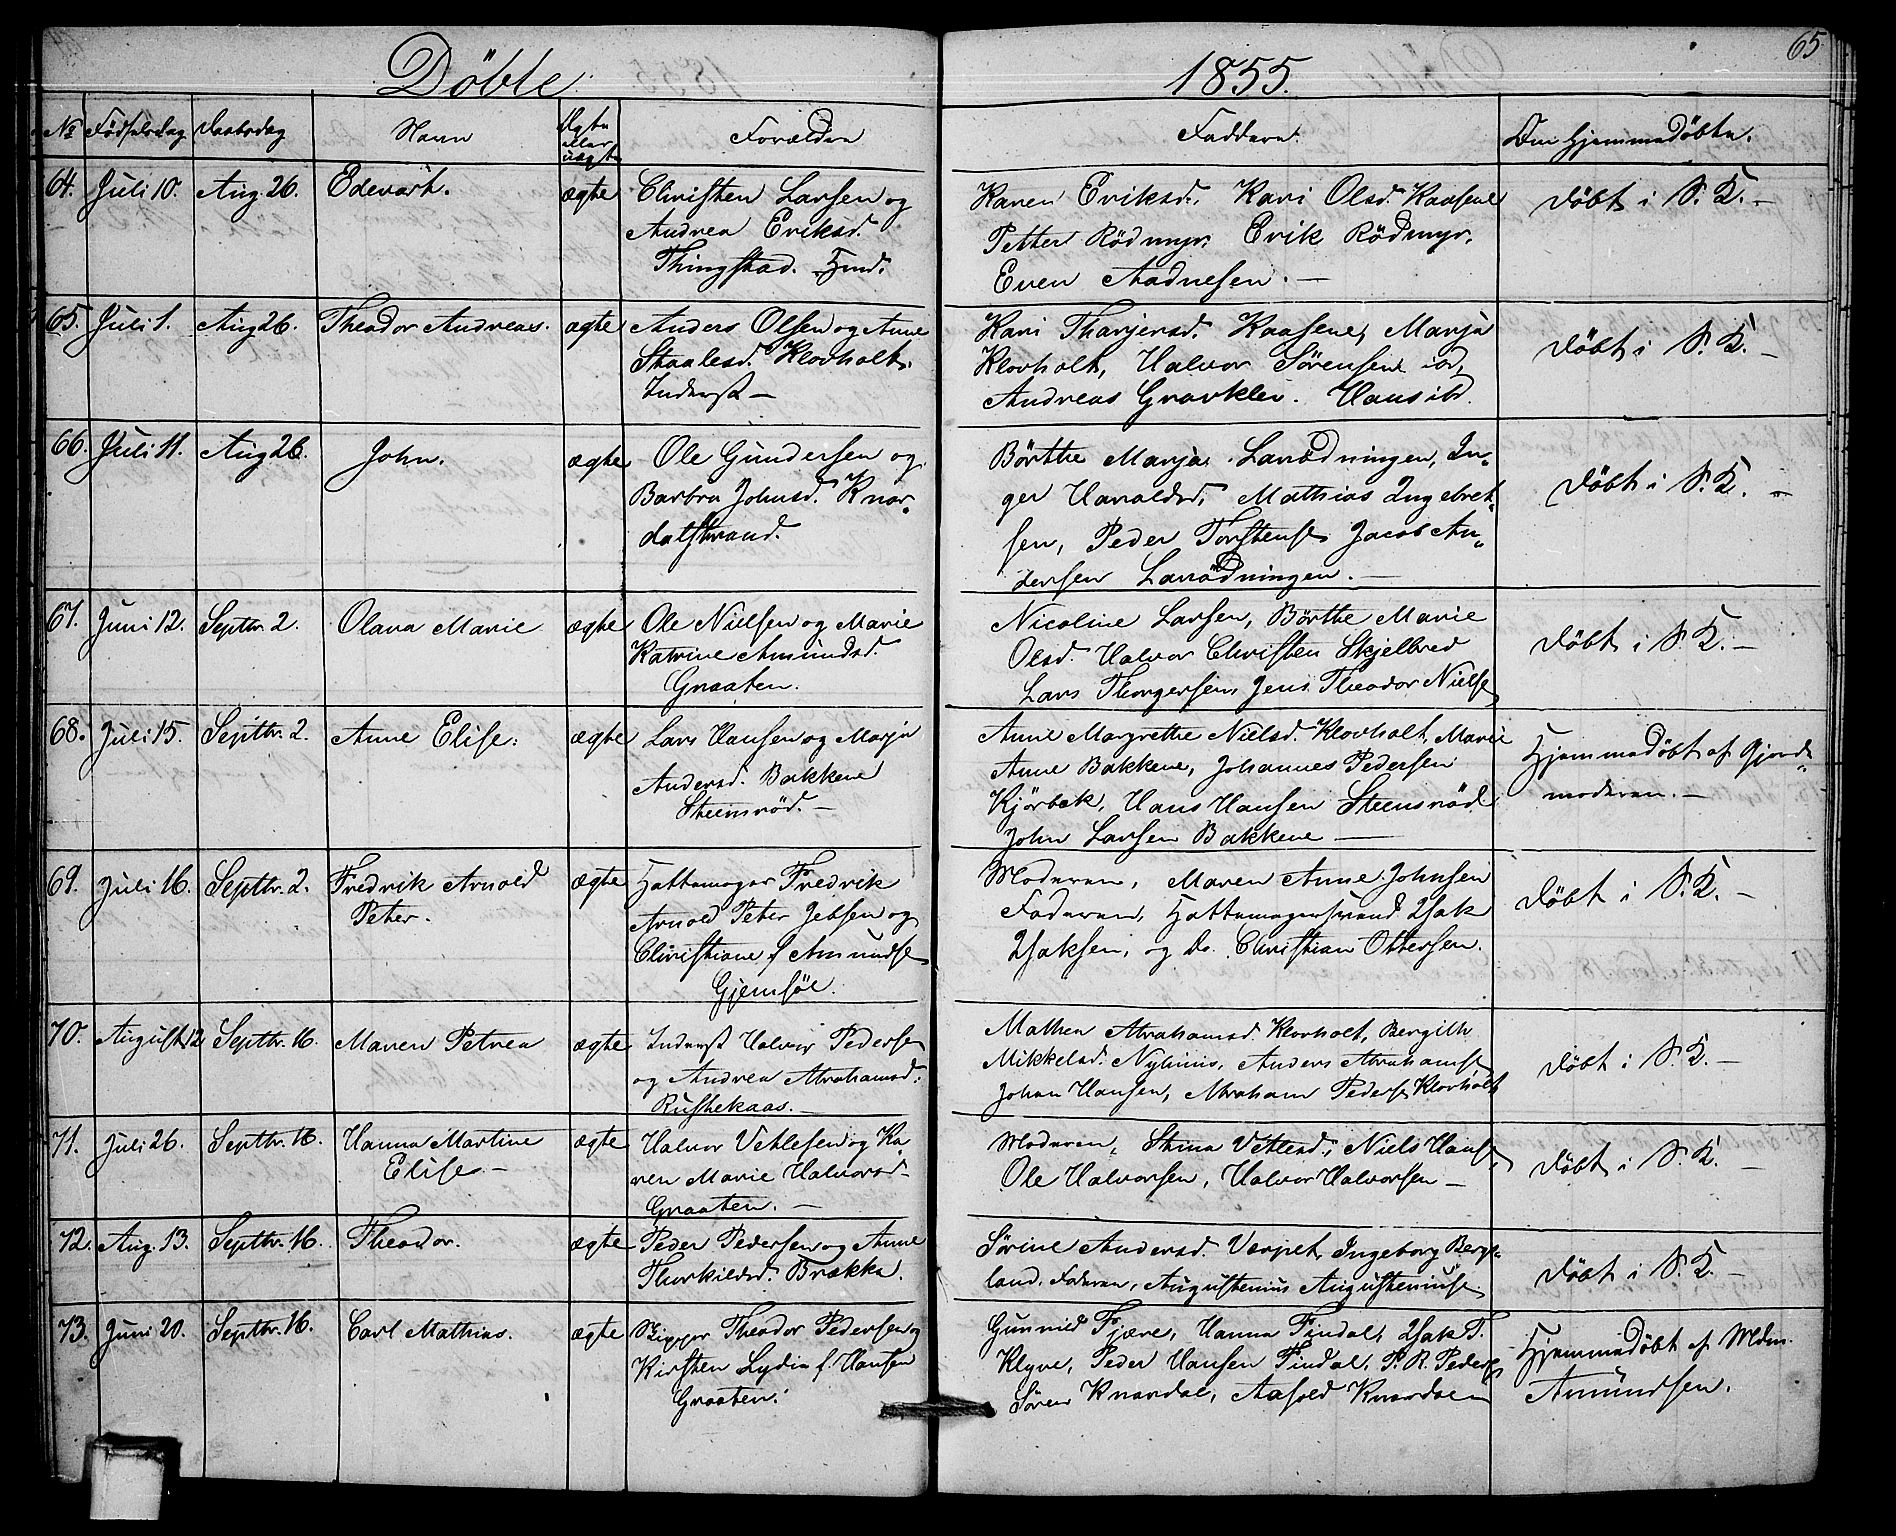 Döbte 1855. 65
No Fødselsdag Daabsdag Navn Ægte eller uægte Forældre Faddere. Om Hjemmedøbte.
64. Juli 10. Aug. 26. Edevart. ægte Christen Larsen og
Andrea Eriksd.
Thingstad. Huusm.
Karen Eriksd., Kari Olsd. Kaasene
Petter Rødmyr. Erik Rødmyr.
Even Aadnesen. —
döbt i S. K. —
65. Juli 1. Aug 26. Theodor Andreas. ægte Anders Olsen og Anne
Staalesd. Klovholt.
Inderst —
Kari Thorjersd. Kaasene, Marja
Klovholt, Halvor Sörensen ibd,
Andreas Gravklev. Hans ibd.
döbt i S. K. —
66. Juli 11. Aug 26. John. ægte Ole Gundersen og
Barbra Johnsd. Knar„
dalstrand.
Börthe Marja Larödningen, In„
ger Haraldsd, Mathias Ingebret„
sen, Peder Torstens. Jacob An„
dersen Larödningen. —
döbt i S. K. —
67. Juni 12. Septbr. 2. Olava Marie ægte Ole Nielsen og Marie
Katrine Amundsd.
Graaten.
Nicoline Larsen, Börthe Marie
Olsd. Halvor Christen Skjelbred
Lars Thorgersen, Jens Theodor Nielse
döbt i S. K. —
68. Juli 15. Septbr. 2. Anne Elise: ægte Lars Hansen og Marja
Andersd. Bakkene
Steensröd. —
Anne Margrethe Nielsd. Klovholt, Marie
Anne Bakkene, Johannes Pedersen
Kjörbek, Hans Hansen Steensröd
John Larsen Bakkene —
Hjemmedöbt af Gjord„
moderen. —
69. Juli 16. Septbr. 2. Fredrik Arnold
Peter. ægte Hattemager Fredrik
Arnold Peter Jebsen og
Christiane f. Amundse
Gjemsöe.
Moderen, Maren Anne Johnsen
Faderen, Hattemagersvend Isak
Isaksen, og do. Christian Ottersen.
döbt i S. K. —
70. August 12 Septbr. 16. Maren Petrea ægte Inderst Halvor Pederse
og Andrea Abrahamsd:
Rustekaas. —
Mathea Abrahamsd. Klovholt, Bergith
Mikkelsd. Nyhuus, Anders Abrahamse
Johan Hansen, Abraham Peders. Klovholt
döbt i S. K. —
71. Juli 26. Septbr. 16. Hanna Martine
Elise — ægte Halvor Vetlesen og Ka
ren Marie Halvorsd—
Graaten. —
Moderen, Stina Vetlesd., Niels Hanse
Ole Halvorsen, Halvor Halvorsen —
döbt i S. K. —
72. Aug. 13. Septbr. 16. Theodor. ægte Peder Pedersen og Anne
Thorkildsd. Brække.
Sörine Andersd. Værpet, Ingeborg Bergs„
land. Faderen, Augustenius Augusteniuse
döbt i S. K. —
73. Juni 20. Septbr. 16. Carl Mathias. ægte Skipper Theodor Pedersen og
Kirsten Lydia f. Hansen
Graaten.
Gunnild Fjære, Hanna Findal, Isak T.
Klyve, Peder Hansen Findal, P. R. Peders
Sören Knardal, Aasold Knardalen
Hjemmedöbt af Mdm.
Amundsen.